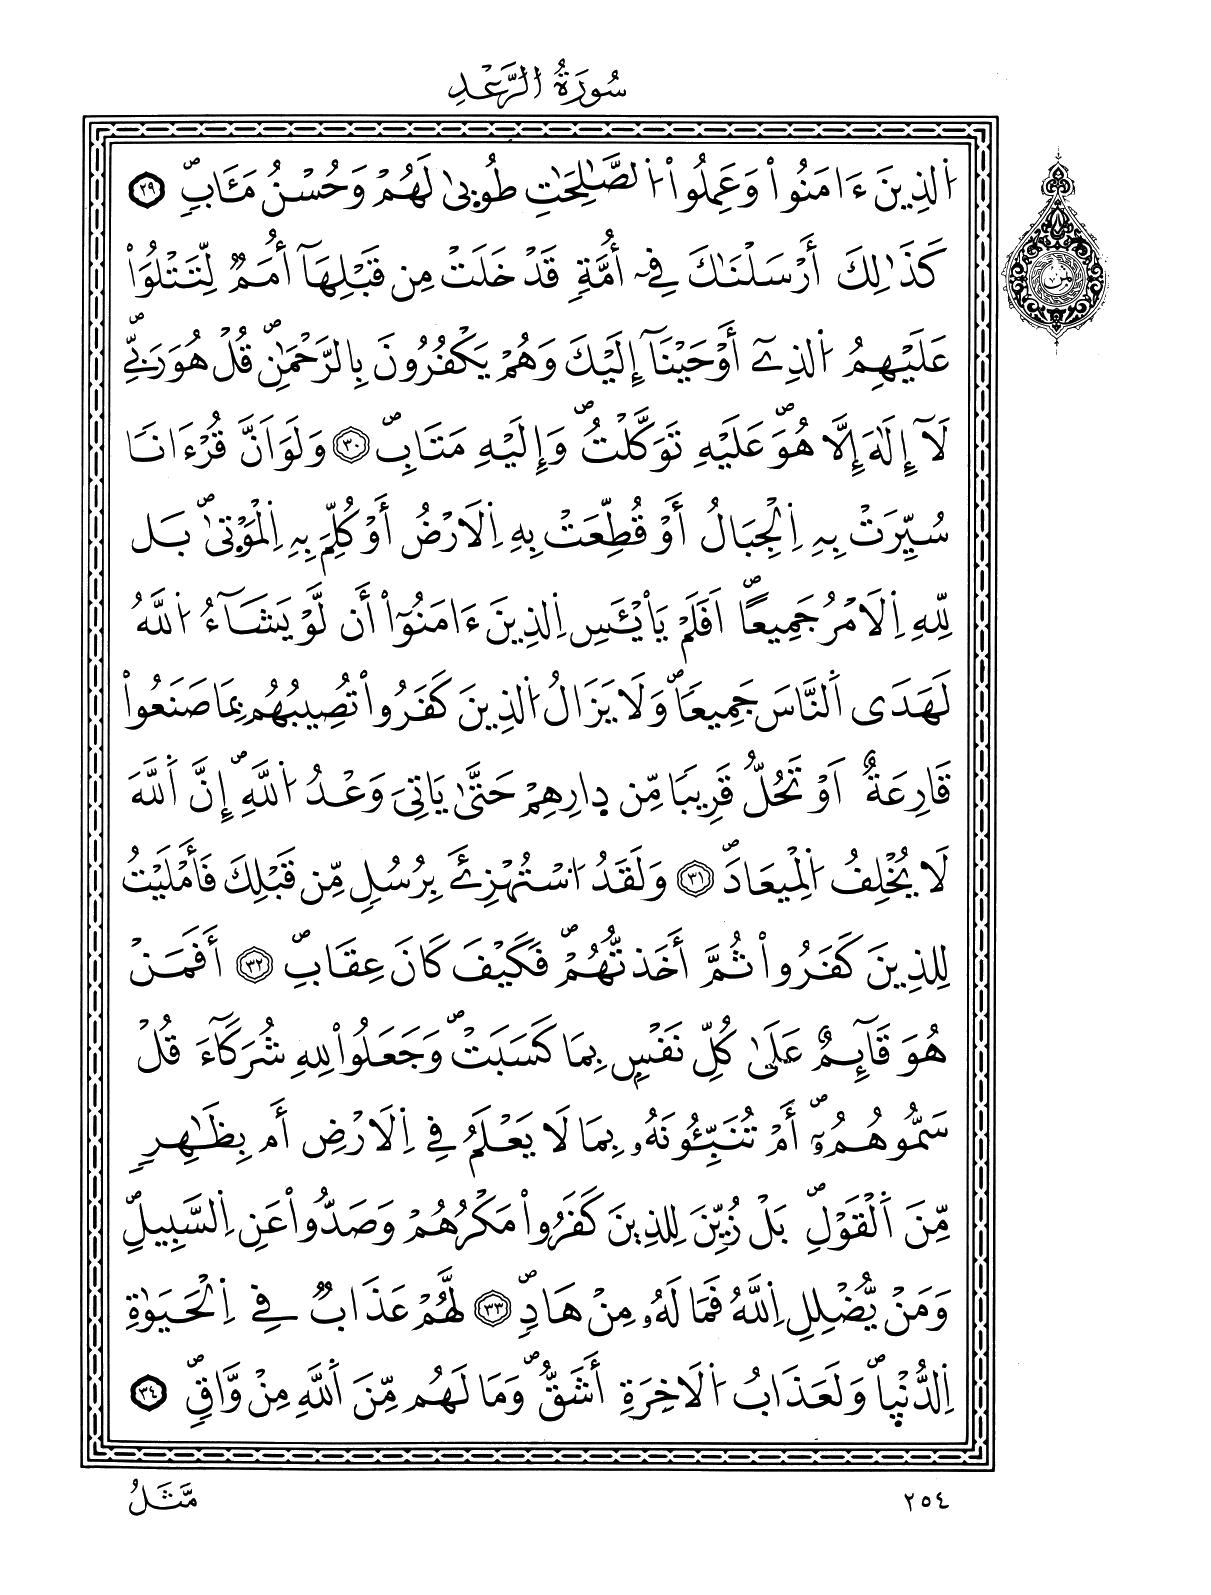 سُورَةُ الرَّعْدِ
ثمن
اَ۬لذِينَ ءَامَنُواْ وَعَمِلُواْ اُ۬لصَّٰلِحَٰتِ طُوب۪يٰ لَهُمْ وَحُسْنُ مَـَٔابٖۖ ٢٩
كَذَٰلِكَ أَرْسَلْنَٰكَ فِےٓ أُمَّةٖ قَدْ خَلَتْ مِن قَبْلِهَآ أُمَمٞ لِّتَتْلُوَاْ
عَلَيْهِمُ اُ۬لذِےٓ أَوْحَيْنَآ إِلَيْكَ وَهُمْ يَكْفُرُونَ بِالرَّحْمَٰنِۖ قُلْ هُوَ رَبِّےۖ
لَآ إِلَٰهَ إِلَّا هُوَۖ عَلَيْهِ تَوَكَّلْتُۖ وَإِلَيْهِ مَتَابِۖ ٣٠ وَلَوَ اَنَّ قُرْءَاناٗ
سُيِّرَتْ بِهِ اِ۬لْجِبَالُ أَوْ قُطِّعَتْ بِهِ اِ۬لَارْضُ أَوْ كُلِّمَ بِهِ اِ۬لْمَوْت۪يٰۖ بَل
لِّلهِ اِ۬لَامْرُ جَمِيعاًۖ اَفَلَمْ يَاْيْـَٔسِ اِ۬لذِينَ ءَامَنُوٓاْ أَن لَّوْ يَشَآءُ اُ۬للَّهُ
لَهَدَى اَ۬لنَّاسَ جَمِيعاٗۖ وَلَا يَزَالُ اُ۬لذِينَ كَفَرُواْ تُصِيبُهُم بِمَا صَنَعُواْ
قَارِعَةٌ اَوْ تَحُلُّ قَرِيباٗ مِّن د۪ارِهِمْ حَتَّىٰ يَاتِيَ وَعْدُ اُ۬للَّهِۖ إِنَّ اَ۬للَّهَ
لَا يُخْلِفُ اُ۬لْمِيعَادَۖ ٣١ وَلَقَدُ اُ۟سْتُهْزِۓَ بِرُسُلٖ مِّن قَبْلِكَ فَأَمْلَيْتُ
لِلذِينَ كَفَرُواْ ثُمَّ أَخَذتُّهُمْۖ فَكَيْفَ كَانَ عِقَابِۖ ٣٢ أَفَمَنْ
هُوَ قَآئِمٌ عَلَىٰ كُلِّ نَفْسِۢ بِمَا كَسَبَتْۖ وَجَعَلُواْ لِلهِ شُرَكَآءَ قُلْ
سَمُّوهُمُۥٓۖ أَمْ تُنَبِّـُٔونَهُۥ بِمَا لَا يَعْلَمُ فِي اِ۬لَارْضِ أَم بِظَٰهِرٖ
مِّنَ اَ۬لْقَوْلِۖ بَلْ زُيِّنَ لِلذِينَ كَفَرُواْ مَكْرُهُمْ وَصَدُّواْ عَنِ اِ۬لسَّبِيلِۖ
وَمَنْ يُّضْلِلِ اِ۬للَّهُ فَمَا لَهُۥ مِنْ هَادٖۖ ٣٣ لَّهُمْ عَذَابٞ فِي اِ۬لْحَيَوٰةِ
اِ۬لدُّنْي۪اۖ وَلَعَذَابُ اُ۬لَاخِرَةِ أَشَقُّۖ وَمَا لَهُم مِّنَ اَ۬للَّهِ مِنْ وَّاقٖۖ ٣٤
٢٥٤
مَّثَلُ